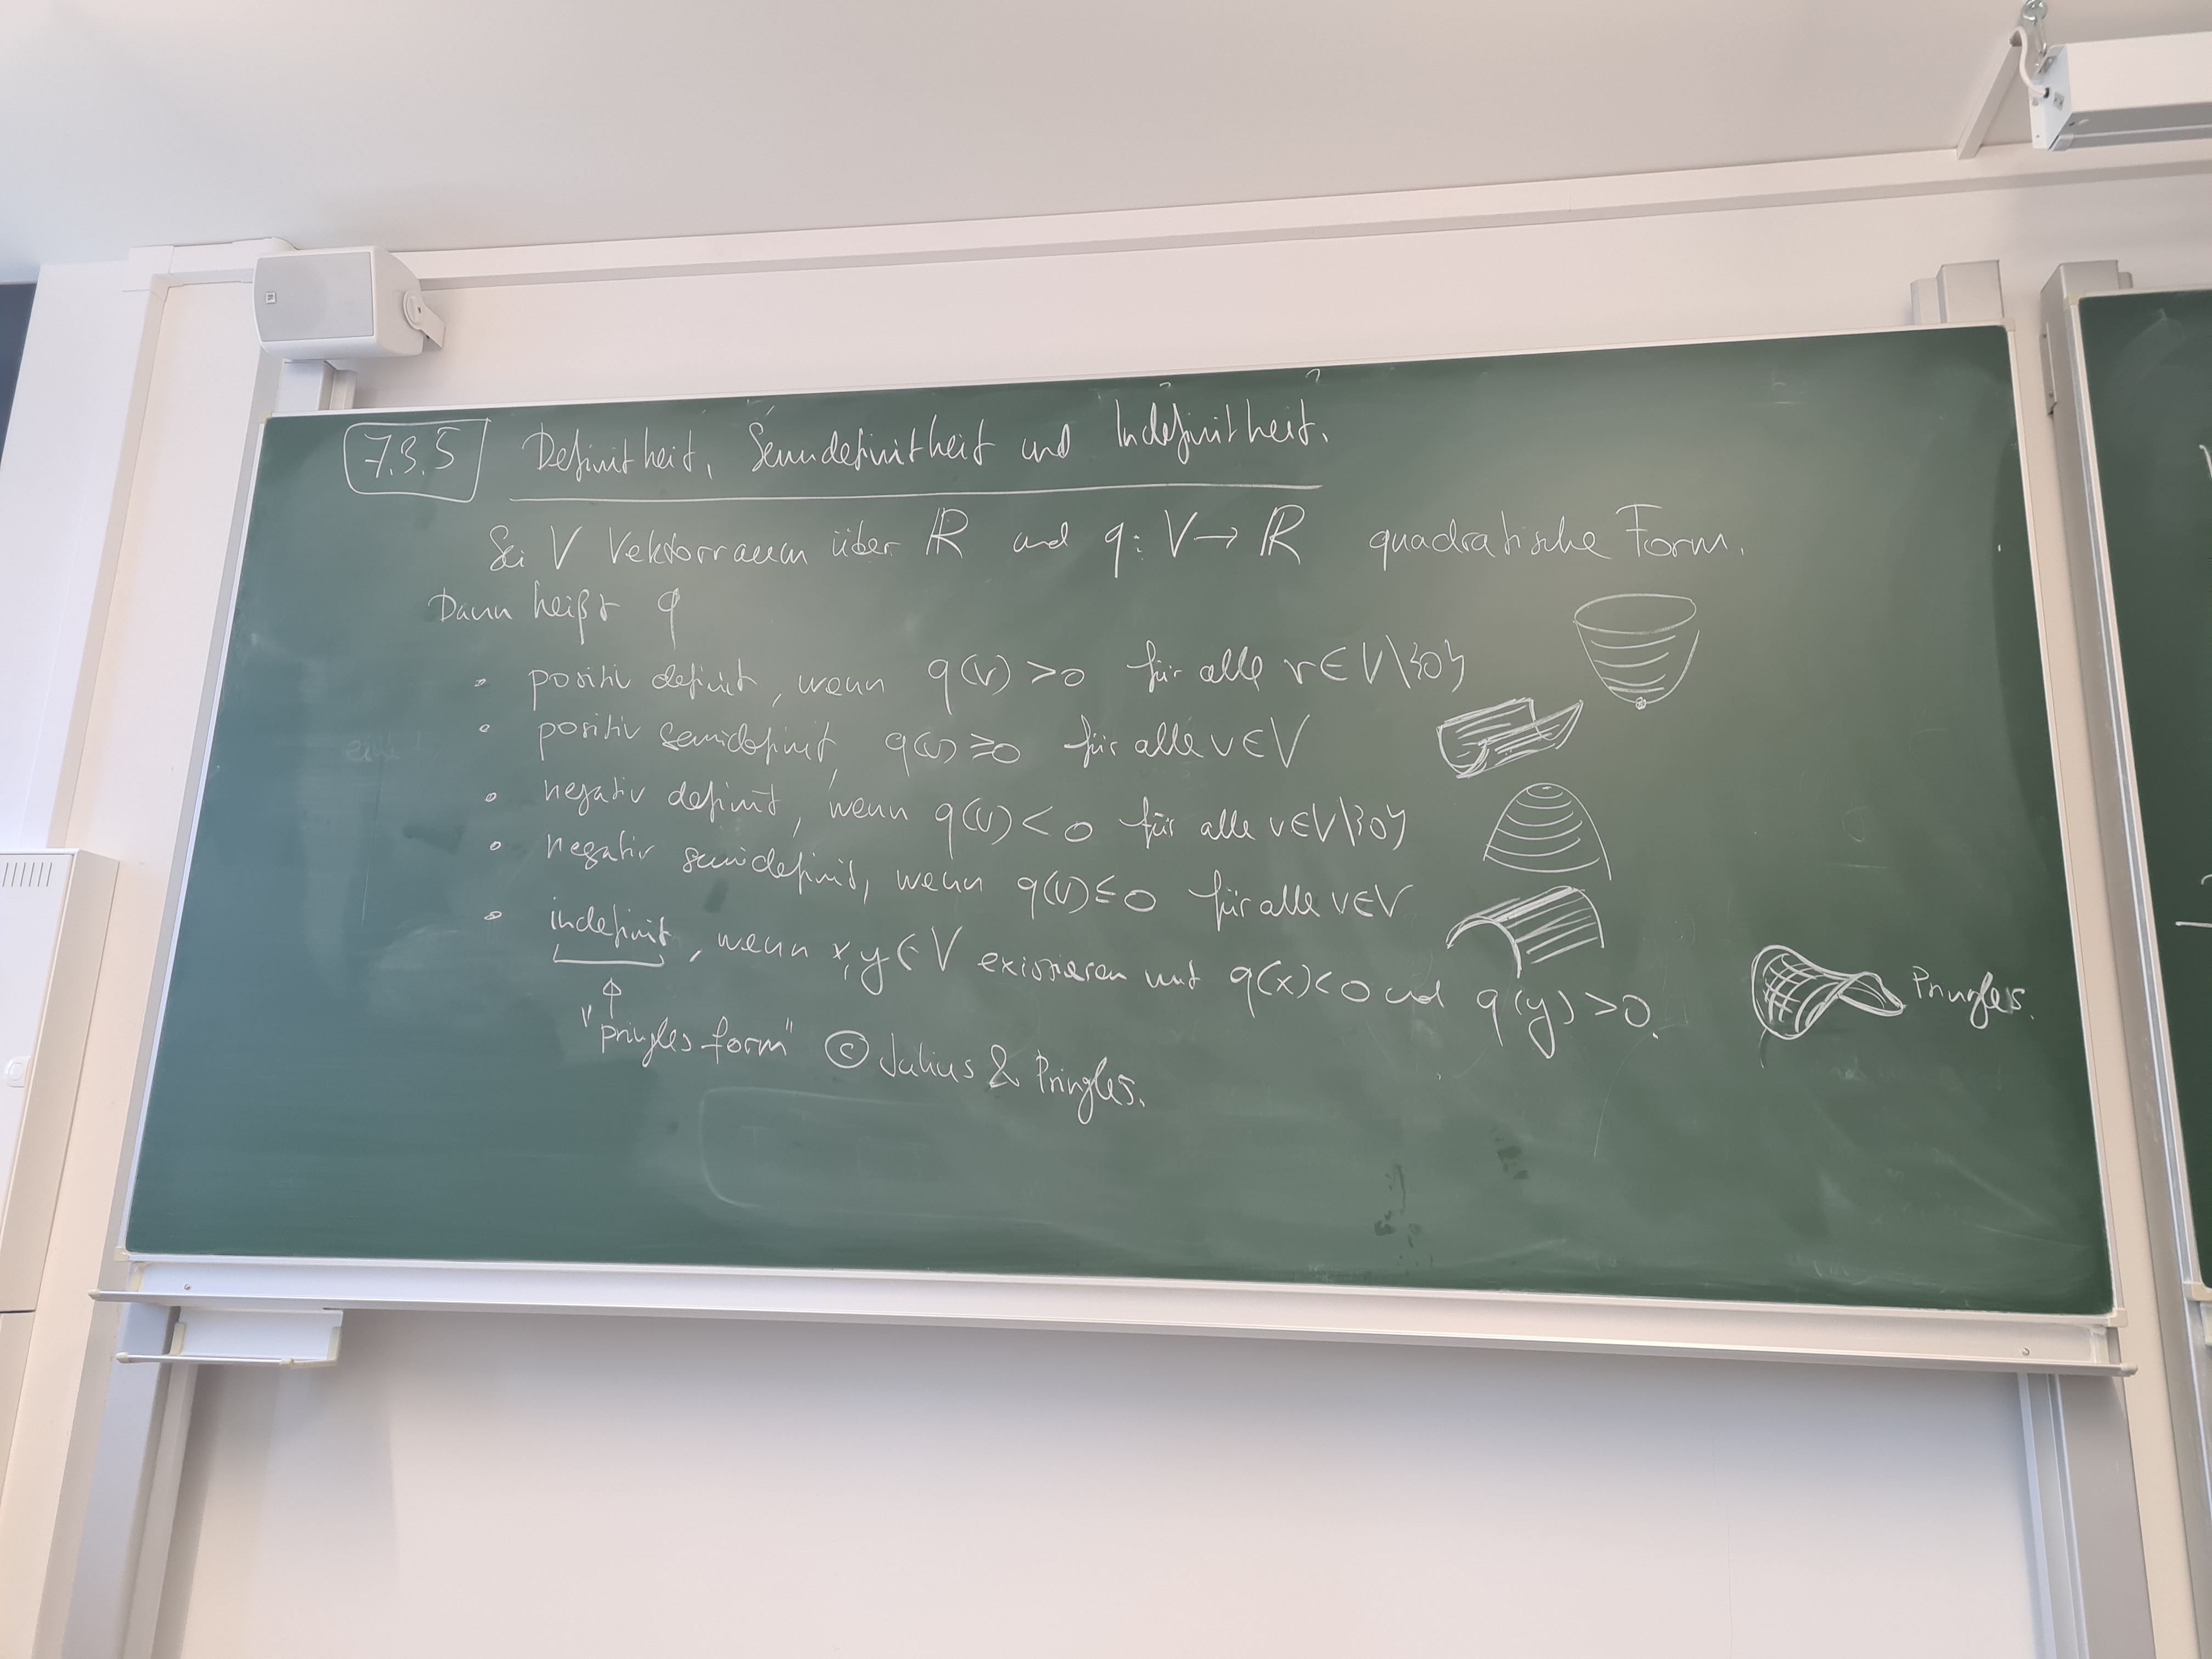 7.3.5 Definitheit, Semidefinitheit und Indefinitheit.
Sei V Vektorraum über ℝ und q: V → ℝ quadratische Form.
Dann heißt q
• positiv definit, wenn q(v) > 0 für alle v ∈ V \ {0}
• positiv semidefinit, q(v) ≥ 0 für alle v ∈ V
• negativ definit, wenn q(v) < 0 für alle v ∈ V \ {0}
• negativ semidefinit, wenn q(v) ≤ 0 für alle v ∈ V
• indefinit, wenn x, y ∈ V existieren mit q(x) < 0 und q(y) > 0.
Pringles.
"pringles form" © Julius & Pringles.